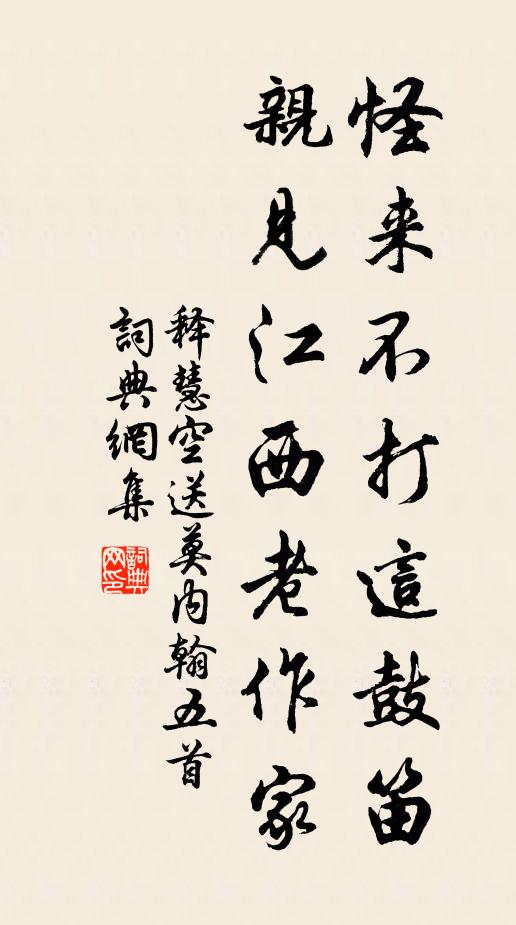 怪来不打這鼓笛
親見江西老作家
释慧空送莫内翰五首
詞典網集
詞典网印